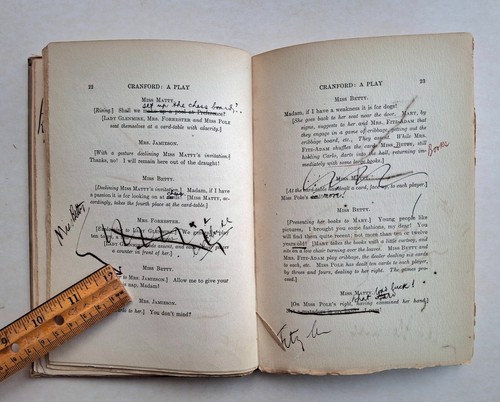 22 CRANFORD: A PLAY
MISS MATTY.
set up the chess board?
[Rising.] Shall we
[LADY GLENMIRE, MRS. FORRESTER and MISS POLE
seat themselves at a card-table with alacrity.]
MRS. JAMIESON.
[With a gesture declining MISS MATTY'S invitation.]
Thanks, no! I will remain here out of the draught!
MISS BETTY.
[Declining MISS MATTY'S Madam, if I have
a passion it is for looking on at
cordingly, takes the fourth place at the card-table.]
MRS. FORRESTER.
is wonder in cheerful fear.]
MISS BETTY.
to MRS. JAMIESON.] Allow me to give your
a nap, Madam!
MRS. JAMIESON.
to her.] You don't mind?
9 10 11 12
CRANFORD: A PLAY 23
MISS BETTY.
Madam, if I have a weakness it is for dogs!
[She goes back to her seat near the door. MARY, by
signs, suggests to her, and MRS. FITZ-ADAM that
they engage in a game of cribbage, getting out the
cribbage board, etc. They assent. While MRS.
FITZ-ADAM shuffles the cards MISS BETTY, still
holding Carlo, darts into the hall, returning im-
mediately with some books.]
Books
MISS
[At the card-table dealt a card, face up, to each player.]
Miss Pole's
MISS BETTY.
[Presenting her books to MARY.] Young people like
pictures, I brought you some fashions, my dear! You
will find them quite recent, not more than ten or twelve
years old! [MARY takes the books with a little curtsey, and
sits on a low chair turning over the leaves. MISS BETTY and
MRS. FITZ-ADAM play cribbage, the dealer dealing six cards
to each, etc. MISS POLE has dealt ten cards to each player,
by threes and fours, dealing to her right. The games pro-
ceed.]
MISS MATTY.
what low luck!
[On MISS POLE'S right, having examined her hand.]